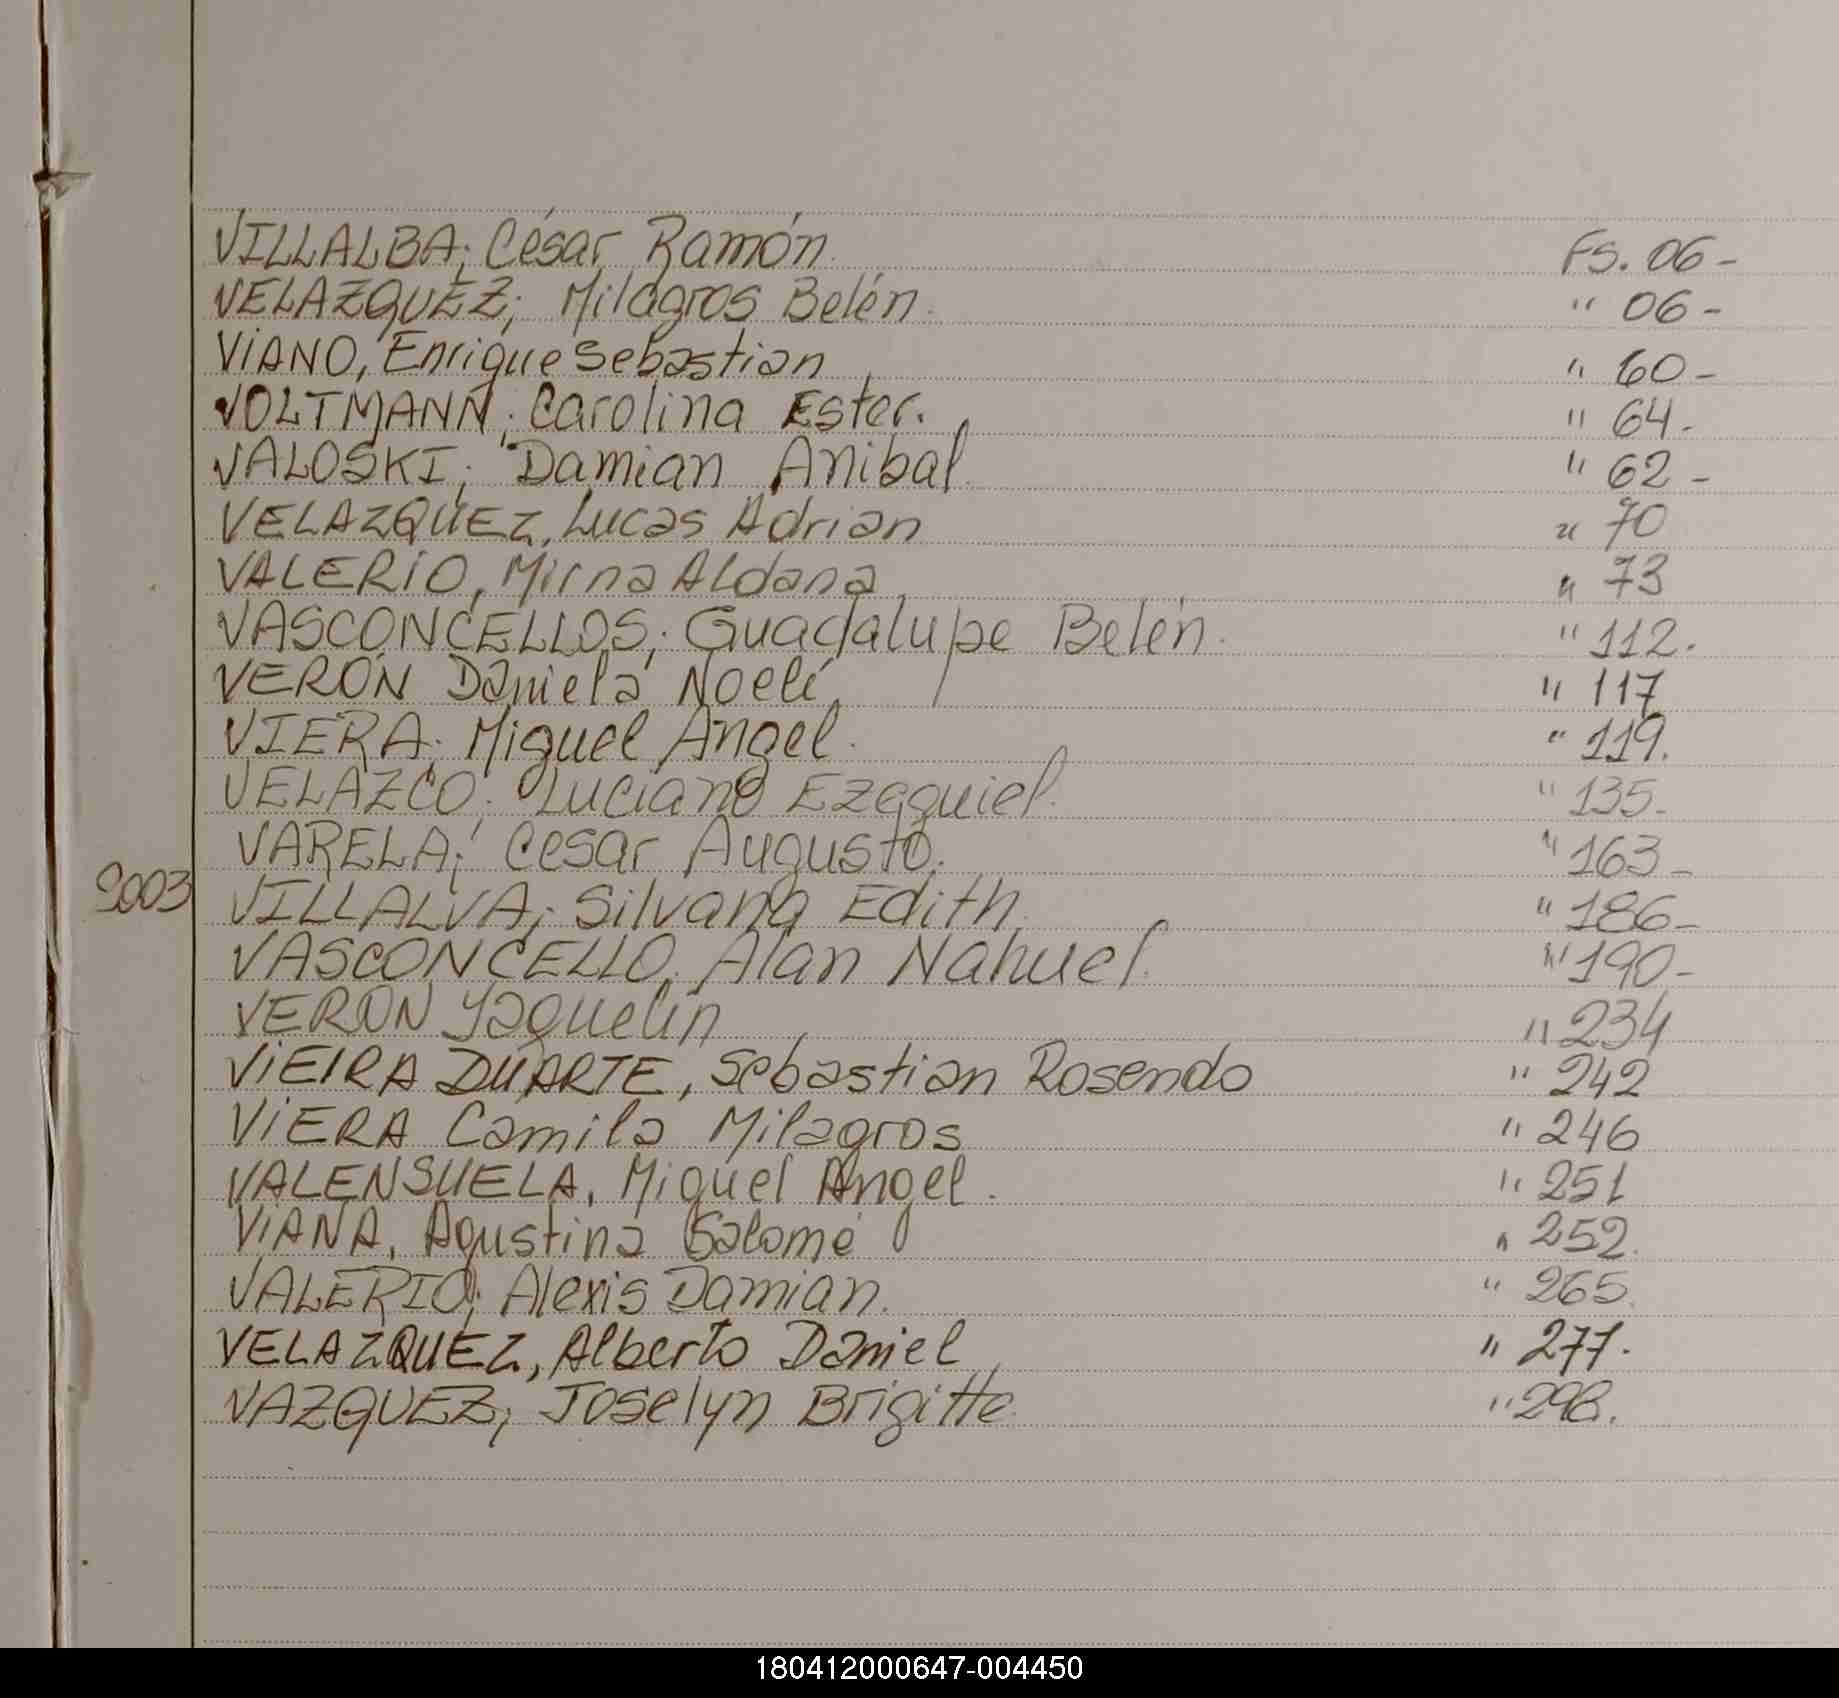 VILLALBA; César Ramón. Fs. 06-
VELAZQUEZ; Milagros Belén. " 06-
VIANO, Enrique Sebastian " 60-
VOLTMANN; Carolina Ester. " 64.
VALOSKI; Damian Anibal. " 62-
VELAZQUEZ, Lucas Adrian " 70
VALERIO, Mirna Aldana " 73
VASCONCELLOS; Guadalupe Belén. " 112.
VERÓN Daniela Noelí " 117
VIERA; Miguel Angel. " 119.
VELAZCO; Luciano Ezequiel. " 135.
VARELA; César Augusto. " 163-
2003 VILLALVA; Silvana Edith. " 186-
VASCONCELLO, Alan Nahuel. " 190-
VERON Yaquelin " 234
VIEIRA DUARTE, Sebastian Rosendo " 242
VIERA Camila Milagros " 246
VALENSUELA, Miguel Angel. " 251
VIANA, Agustina Salomé " 252.
VALERIO; Alexis Damian. " 265.
VELAZQUEZ, Alberto Daniel " 277.
VAZQUEZ; Joselyn Brigitte " 298.
180412000647-004450